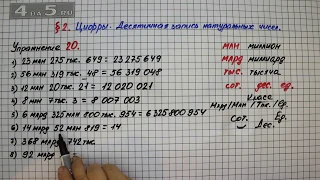 4 ДЛЯ 5.RU
§ 2. Цифры. Десятичная запись натуральных чисел.
Упражнение 20.
1) 23 млн 275 тыс. 649 = 23 275 649
2) 56 млн 319 тыс. 48 = 56 319 048
3) 12 млн 20 тыс. 21 = 12 020 021
4) 8 млн 7 тыс. 3 = 8 007 003
5) 6 млрд 325 млн 800 тыс. 954 = 6 325 800 954
6) 14 млрд 52 млн 819 = 14
7) 368 млрд 742 тыс.
8) 92 млрд
млн миллион
млрд миллиард
тыс. тысяча
сот. дес. ед.
Класса
Млрд | Млн | Тыс. | Ед.
Сот. Ед.
Дес.